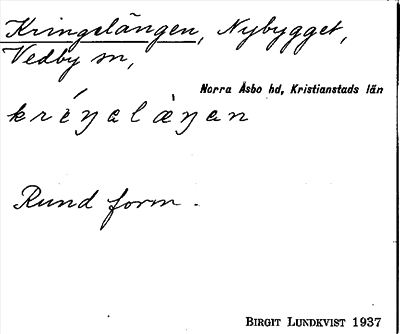 Kringelängen, Nybygget,
Vedby sn,
Norra Åsbo hd, Kristianstads län
kréŋalàŋan
Rund form.
BIRGIT LUNDKVIST 1937